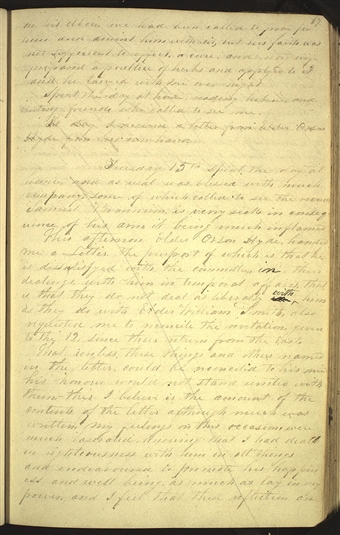 87
on his elbow we had been called to pray for
him and anoint him with oil, but his faith was
not sufficient to effect a cure, and now my
prepared a poultice of herbs and applyed to it
and he tarried with me over night
Spent the day at home reading hebrew, and
visiting friends who called to see me.
to Day I received a letter from Elder Orson
Hyde from his own hand
Thursday 15th Spent the day at
home and as usual was blessed with much
company, some of which called to see the
Samuel Brannum, is very sick in conseq
uence of his arm it being much inflamed
This afternoon Elder Orson Hyde, handed
me a Letter, the purport of which is that he
is dissatisfyed with the committee in their
dealings with him in temporal affairs, that
is that they do not deal as liberally with him
as they do with Elder William Smith, also
requested me to reconcile the revelation, given
to the 12, since their return from the East
That unless, these things and others named
in the letter, could be reconciled to his mind
his honour would not stand united with
them. this I believe is the amount of the
contents of the letter although much was
written, my feelings on this occasion, were
much lacerated, knowing that I had dealt
in righteousness with him in all things
and endeavoured to promote his happin
ess and well being, as much as lay in my
power, and I feel that these reflections are